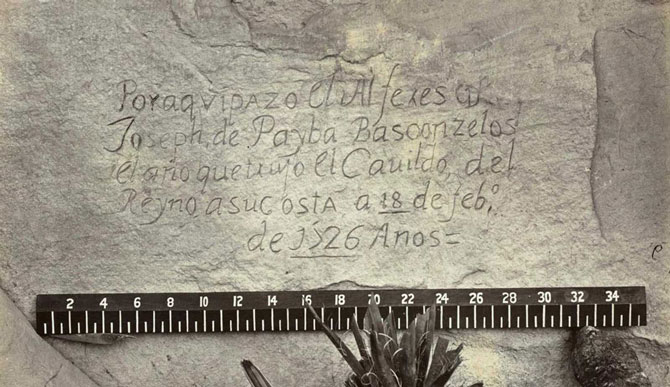 Por aqui pazo el Alferes Dn
Joseph de Payba Basconzelos
el año que trujo el Cauildo, del
Reyno a su costa a 18 de feb.o
de 1526 Anos=
2 4 6 8 10 12 14 16 18 20 22 24 26 28 30 32 34